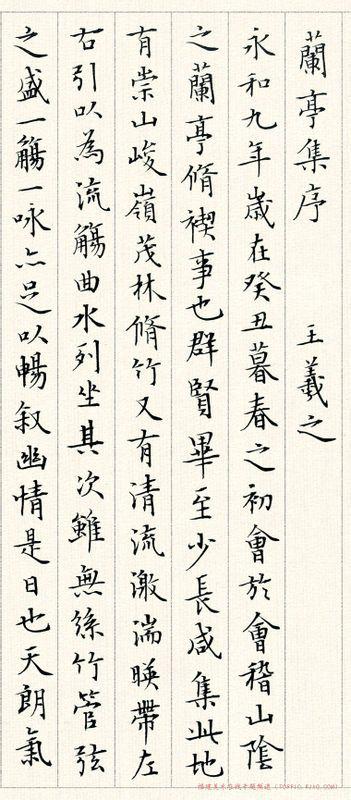 蘭亭集序 王羲之
永和九年歲在癸丑暮春之初會於會稽山陰
之蘭亭脩禊事也群賢畢至少長咸集此地
有崇山峻嶺茂林脩竹又有清流激湍暎帶左
右引以為流觴曲水列坐其次雖無絲竹管弦
之盛一觴一咏亦足以暢叙幽情是日也天朗氣